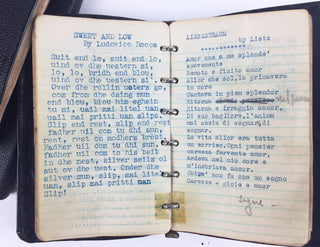 SWEET AND LOW
By Ludovico Rocca
Suit end lo, suit end lo,
uind ov dhe uestern si,
lo, lo, bridh end blou,
uind ov dhe uestern si!
Over dhe rollin uaters go,
com from dhe daing mun
end blou, blou him eghein
tu mi, uail mai litel uan
uail mai pritti uan slips.
Slip end rest, slip end rest
fadher uil com tu dhi sun,
rest, rest on modhers brest
fadher uil com tu dhi sun,
fadher uil com to his beib
in dhe nest, silver seils ol
aut ov dhe uest. Onder dhe
silver mun, slip, mai litel
uan, slip mai pritti uan
Slip!
LIEBESTRAUM
by Lists
Amor che a me splende'
soavemente
Remoto e finito amor
Allor che sol, la primavera
in core
Cantava in pien splendor
Ritorna
Ritorna o fraggia ancor
Di suo bagliore, l'anima
mai sazia di sognar, di
sognar.
La vita allor era tutta
un sorriso. Ogni pensier
carezza fervente amor,
Ardava nel mio core e
m'inebriava amor.
Ohime' non fu che un sogno
Carezze e gioie e amor
segue